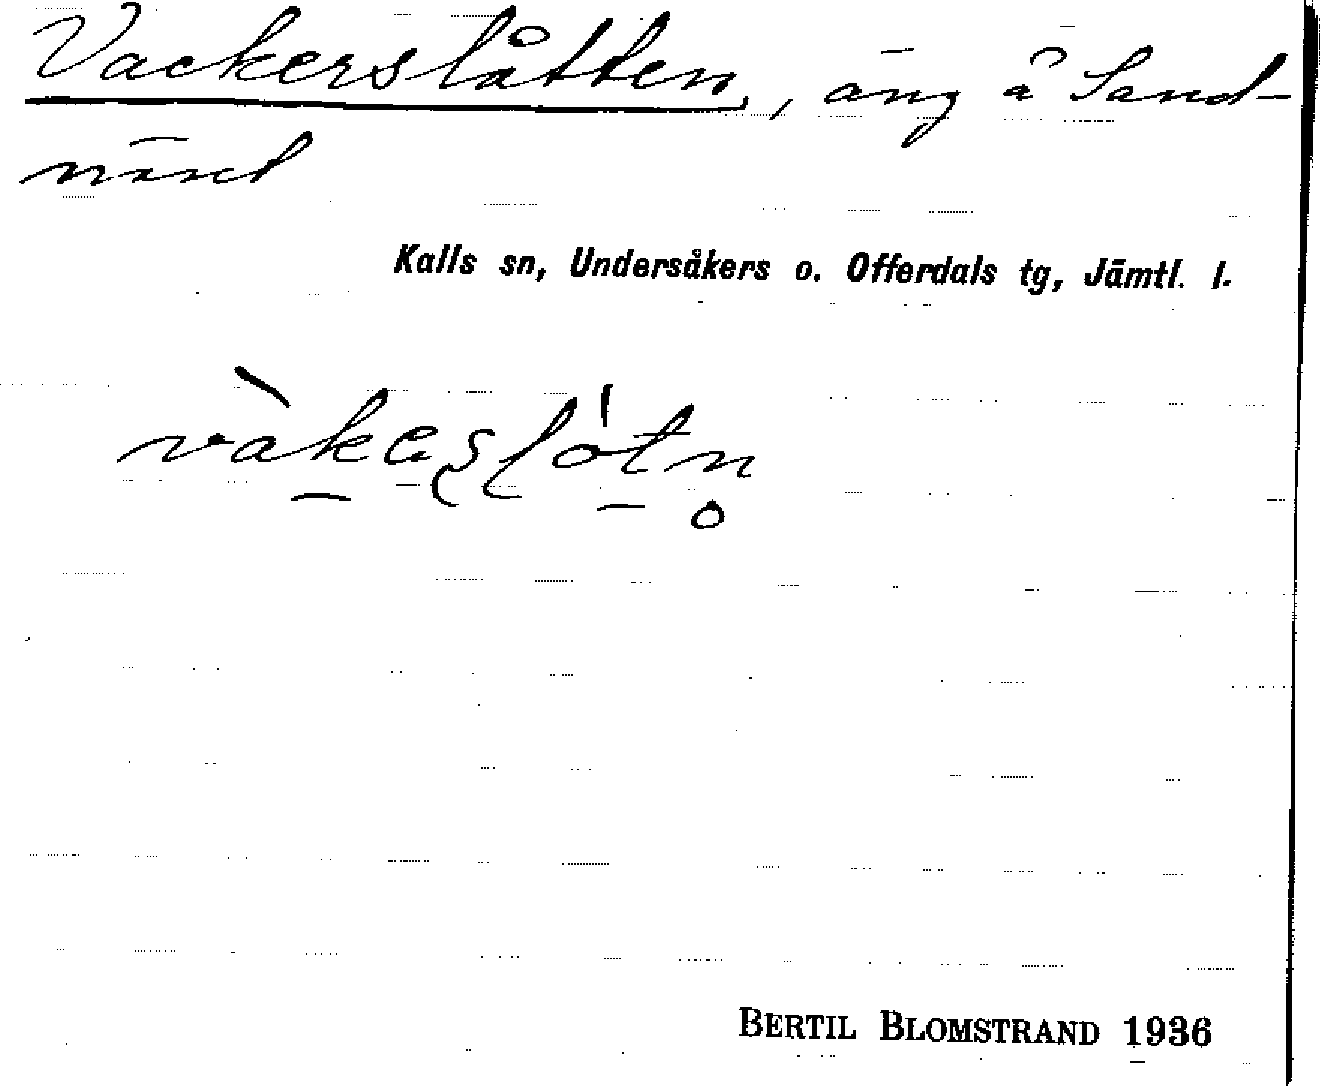 Vackerslåtten, äng å Sand-
näset
Kalls sn, Undersåkers o. Offerdals tg, Jämtl. l.
BERTIL BLOMSTRAND 1936